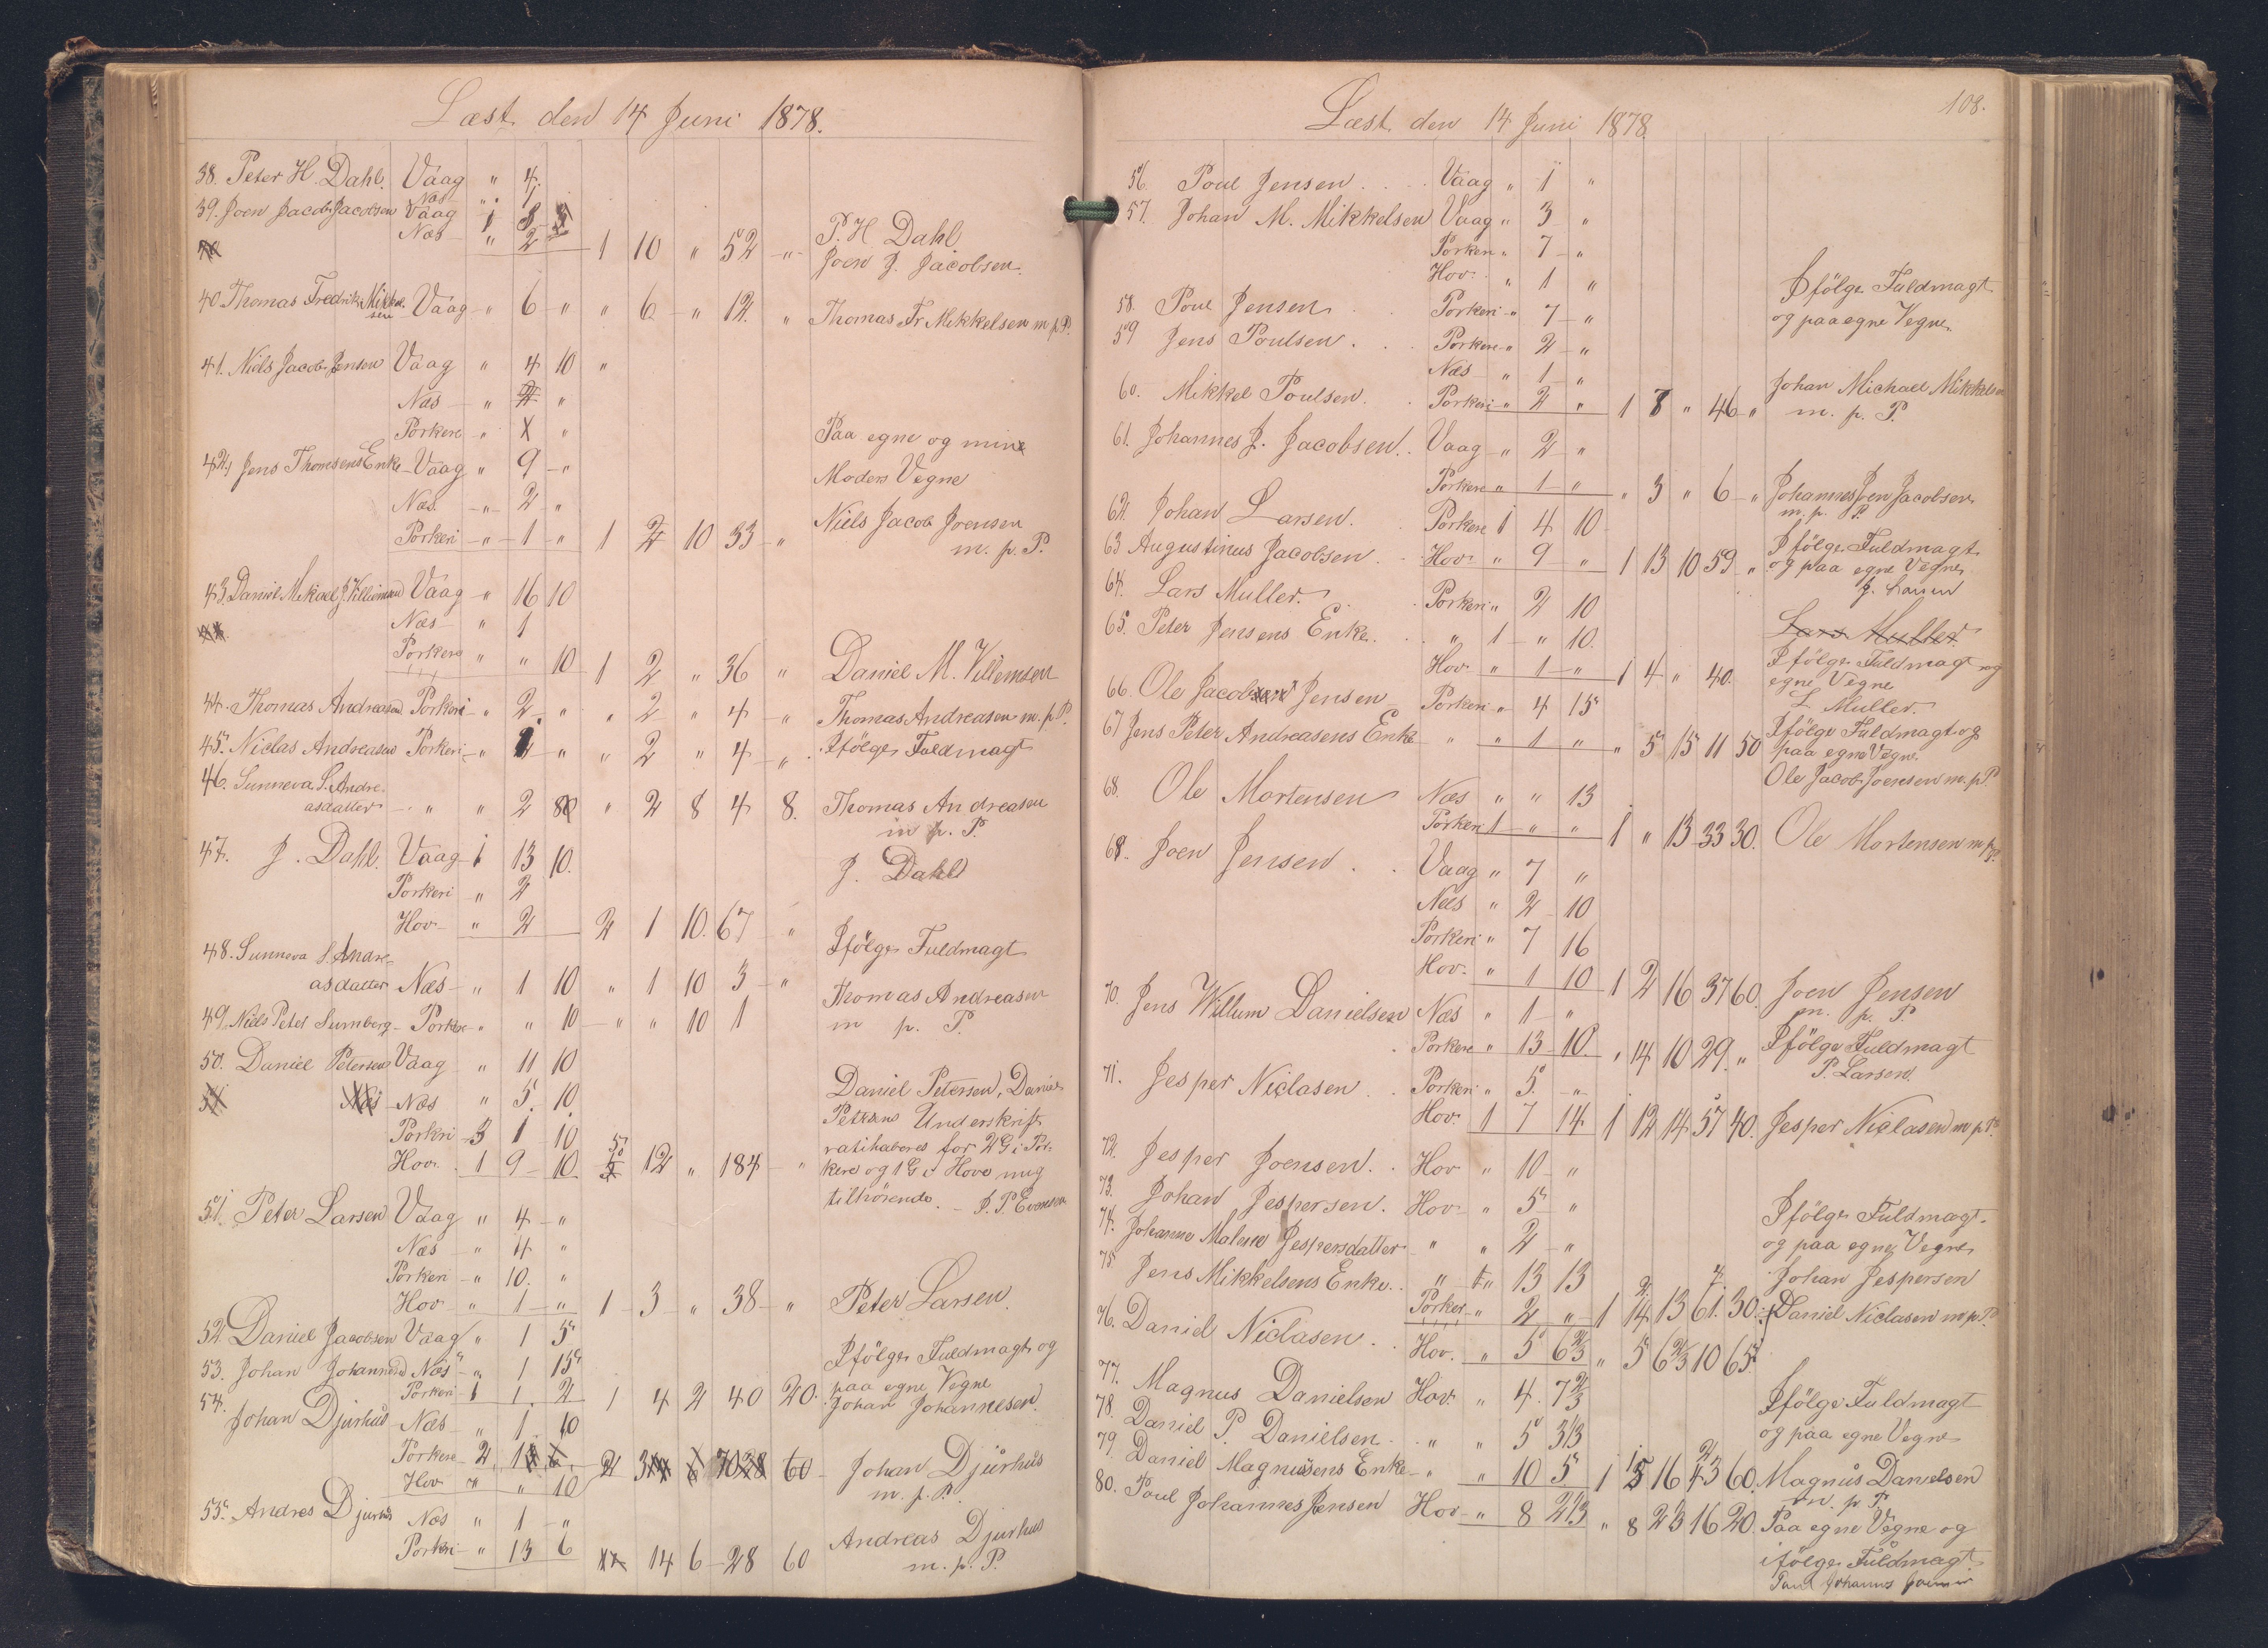 Læst den 14 Juni 1878.
38. Peter H. Dahl. Vaag " 4.
Næs " 1
39. Joen Jacob Jacobsen Vaag 1
Næs " 2 1 10 " 52 " P. H. Dahl
Joen J. Jacobsen.
40. Thomas Fredrik Mikkel-
sen Vaag " 6 " " 6 " 12 " Thomas Fr Mikkelsen m. p. P.
41. Niels Jacob Jensen Vaag " 4 10 "
Næs " 2 "
Porkere " "
Paa egne og mine
42. Jens Thomsens Enke Vaag " 9 "
Moders Vegne
Næs " 2 "
Porkeri " 1 " 1 2 10 33 " Niels Jacob Joensen
m. p. P.
43. Daniel Mikael J. Villiemsen Vaag " 16 10
Næs " 1
Porkere " " 10 1 2 " 36 " Daniel M. Villemsen
44. Thomas Andreasen Porkeri " 2 " " 2 " 4 " Thomas Andreasen m. p. P.
45. Niclas Andreasen Porkeri " 2 " " 2 " 4 " Ifölge Fuldmagt
46. Sunneva S. Andre-
asdatter " " 2 8 " 2 8 4 8. Thomas Andreasen
m. p. P.
47. J. Dahl. Vaag 1 13 10. J. Dahl
Porkeri " 2
Hov " 2 2 1 10. 67 "
48. Sunneva S. Andre- Ifölge Fuldmagt
asdatter Næs " 1 10 " 1 10 3 " Thomas Andreasen
49. Niels Peter Sumberg Porkere " " 10 " " 10 1 m. p. P.
50. Daniel Petersen Vaag " 11 10
Næs " 5. 10. Daniel Petersen, Daniel
Porkri 3 1 10 Petersens Underskrift
ratihaberes for 2 G i Por-
Hov. 1 9 10. 5 12 " 184 " kere og 1 G i Hove mig
tilhörende. - J. P. Evensen
51. Peter Larsen Vaag " 4 "
Næs " 4 "
Porkeri " 10. "
Hov " 1 " 1 3 " 38 " Peter Larsen.
52. Daniel Jacobsen Vaag " 1 5
53. Johan Johannesen Næs " 1 15 Ifölge Fuldmagt og
Porkeri 1 1. 2 1 4 2 40 20. paa egne Vegne
Johan Johannesen.
54. Johan Djurhus Næs " 1. 10
Porkere 2 1 2 3 70 60 Johan Djurhus
Hov " " 10 m. p. P.
55. Andres Djurhus Næs " 1 "
Porkeri " 13 6 14 6 28 60 Andreas Djurhus
m. p. P.
Læst den 14 Juni 1878
108.
56. Poul Jensen. Vaag " 1 "
57. Johan M. Mikkelsen Vaag " 3 "
Porkeri " 7 "
Hov. " 1 " Ifölge Fuldmagt
58. Poul Jensen Porkeri " 7 " og paa egne Vegne
59 Jens Poulsen. Porkere " 2 "
Næs " 1 "
60. Mikkel Poulsen. Porkeri " 2 " 1 8 " 46 " Johan Michael Mikkelsen
m. p. P.
61. Johannes J. Jacobsen. Vaag " 2 "
Porkere " 1 " " 3 " 6 " Johannes Joen Jacobsen
m. p. P.
62. Johan Larsen. Porkere 1 4 10
63 Augustinus Jacobsen Hov. " 9 " 1 13 10 59 " Ifölge Fuldmagt
og paa egne Vegne
64. Lars Muller. Porkeri " 2 10
65. Peter Jensens Enke. " 1 " 10. Lars Muller
Hov " 1 " 1 4 " 40. Ifölge Fuldmagt og
egne Vegne
L Muller.
66. Ole Jacob Jensen Porkeri " 4 15
67 Jens Peter Andreasens Enke " " 1 " " 5 15 11 50 Ifölge Fuldmagt og
paa egne Vegne.
Ole Jacob Joensen m. p. P.
68. Ole Mortensen Næs " " 13
Porkeri 1 " " 1 " 13 33 30. Ole Mortensen m p P.
69. Joen Jensen. Vaag " 7 "
Næs " 2 10
Porkeri " 7 16
Hov. " 1 10 1 2 16 37 60. Joen Jensen
m. p. P.
70. Jens Willum Danielsen Næs " 1 "
Porkere " 13 10. " 14 10 29. " Ifölge Fuldmagt
P. Larsen.
71. Jesper Niclasen. Porkeri " 5. "
Hov. 1 7 14 1 12 14 57 40. Jesper Niclasen m p P.
72. Jesper Joensen. Hov " 10 "
73. Johan Jespersen. Hov " 5 " Ifölge Fuldmagt
74. Johanne Malene Jespersdatter " " 2 " og paa egne Vegne
75 Jens Mikkelsens Enke. " " 13 13 Johan Jespersen
Porker. " 2 " 1 14 13 61. 30. Daniel Niclasen m p P.
76. Daniel Niclasen. Hov. " 5 6 2/3 " 5 6 2/3 10 65
77. Magnus Danielsen Hov. " 4. 7 2/3 Ifölge Fuldmagt
78. Daniel P. Danielsen. " " 5 3 1/3 og paa egne Vegne
79. Daniel Magnussens Enke " " 10 5. 1 5 16 43 60. Magnus Danielsen
m. p. P.
80. Poul Johannes Jensen Hov " 8 2 1/3 " 8 2 1/3 16 20. Paa egne Vegne og
ifölge Fuldmagt
Poul Johannes Joensen